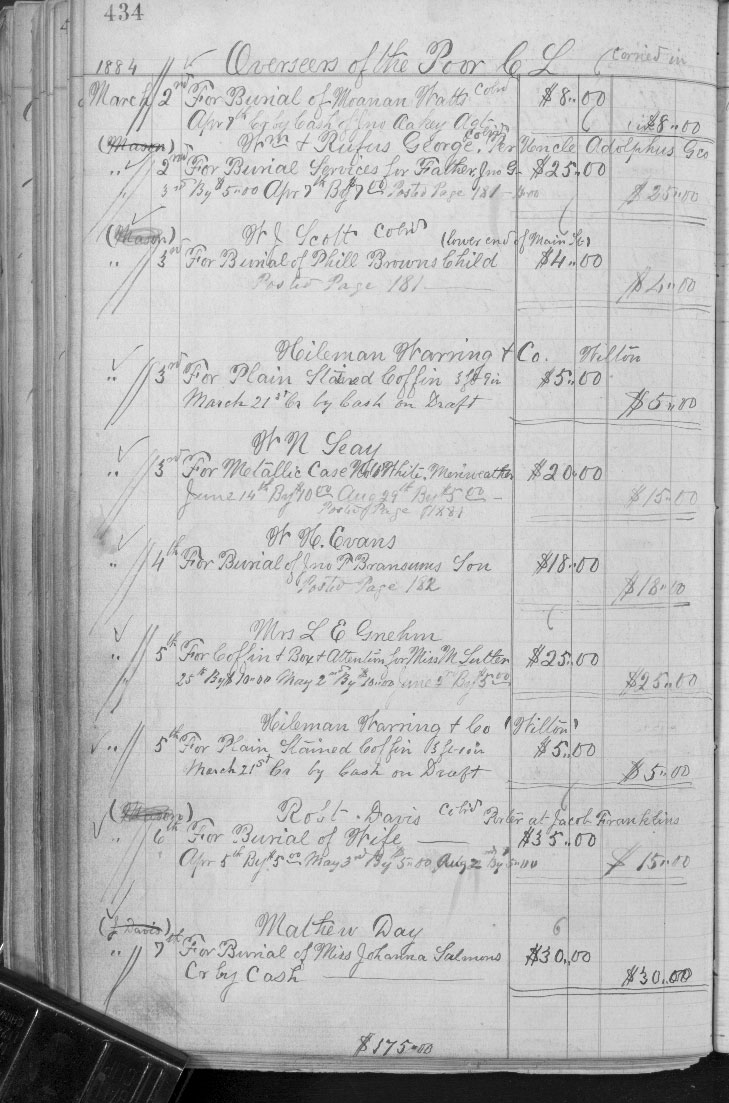 434
1884 Overseers of the Poor C L (Corried in
March 2nd For Burial of Moanan Watts Cold $8.00
Apr 7th Cr by Cash of Jno Oakey Agt $8.00
(Mason) Wm & Rufus George Cold, Per Uncle Adolphus Geo
" 2nd For Burial Services for Father, Jno G $25.00
3rd By $5.00 Apr 7th By $7.00 Posted Page 181 $25.00
(Mason) W J Scott Cold (lower end of Main St)
" 3rd For Burial of Phill Browns Child $4.00
Posted Page 181 $4.00
Hileman Warring & Co. Wilton
" 3rd For Plain Stained Coffin 3 ft 9 in $5.00
March 21st Cr by Cash on Draft $5.00
W N Seay
" 3rd For Metallic Case No 8 White, Meriweather $20.00
June 14th By $10.00 Aug 29th By $5.00 $15.00
Posted Page 181
W H. Evans
" 4th For Burial of Jno P Bransums Son $18.00
Posted Page 182 $18.00
Mrs L E Grehm
" 5th For Coffin & Box & Attention for Miss M Sutler $25.00
25th By $10.00 May 2nd By $10.00 June By $5.00 $25.00
Hileman Warring & Co (Wilton)
" 5th For Plain Stained Coffin ft in $5.00
March 21st Cr by Cash on Draft $5.00
(Mason) Robt. Davis Cold Porter at Jacob Franklins
" 6th For Burial of Wife $35.00
Apr 5th By $5.00 May 3rd By $5.00 Aug 2nd By $5.00 $15.00
(J Davis) Mathew Day
" 7th For Burial of Miss Johanna Salmons $30.00
Cr by Cash $30.00
$175.00